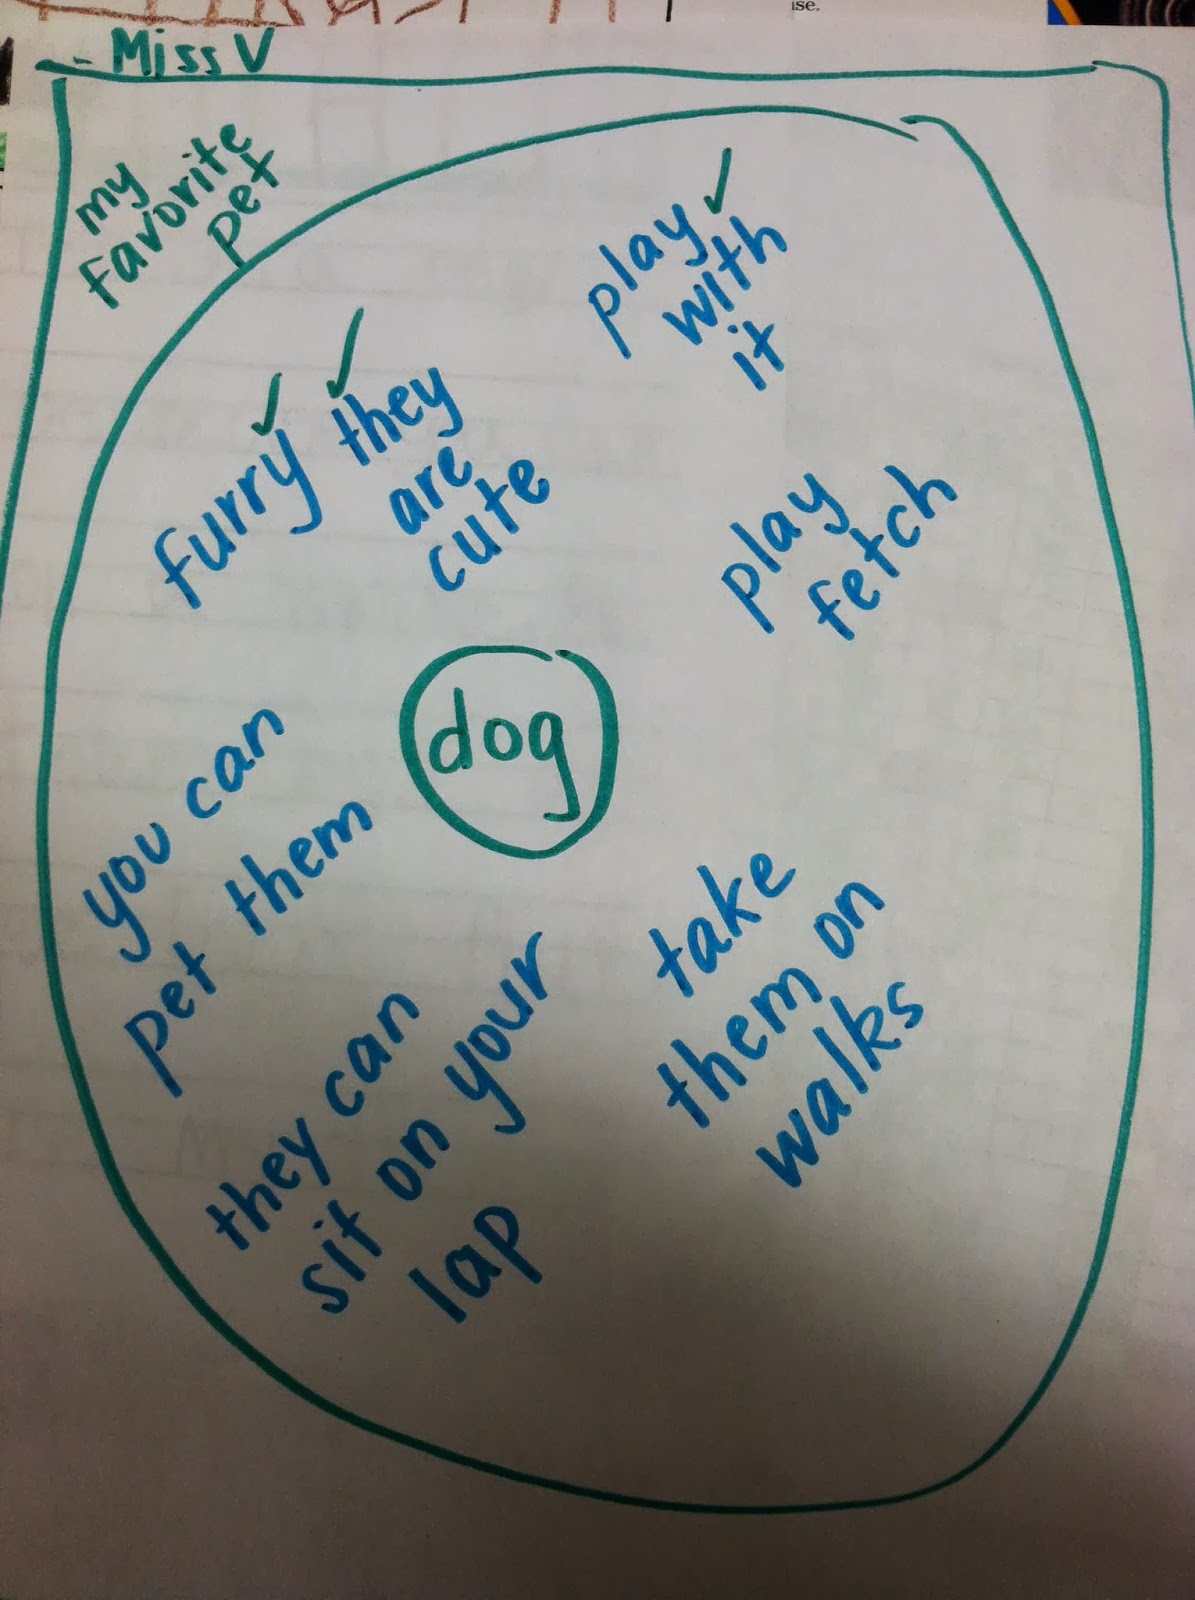 ise.
- Miss V
my
favorite
pet
play
with
it
furry
they
are
cute
play
fetch
dog
you can
pet them
take
them on
walks
they can
sit on your
lap